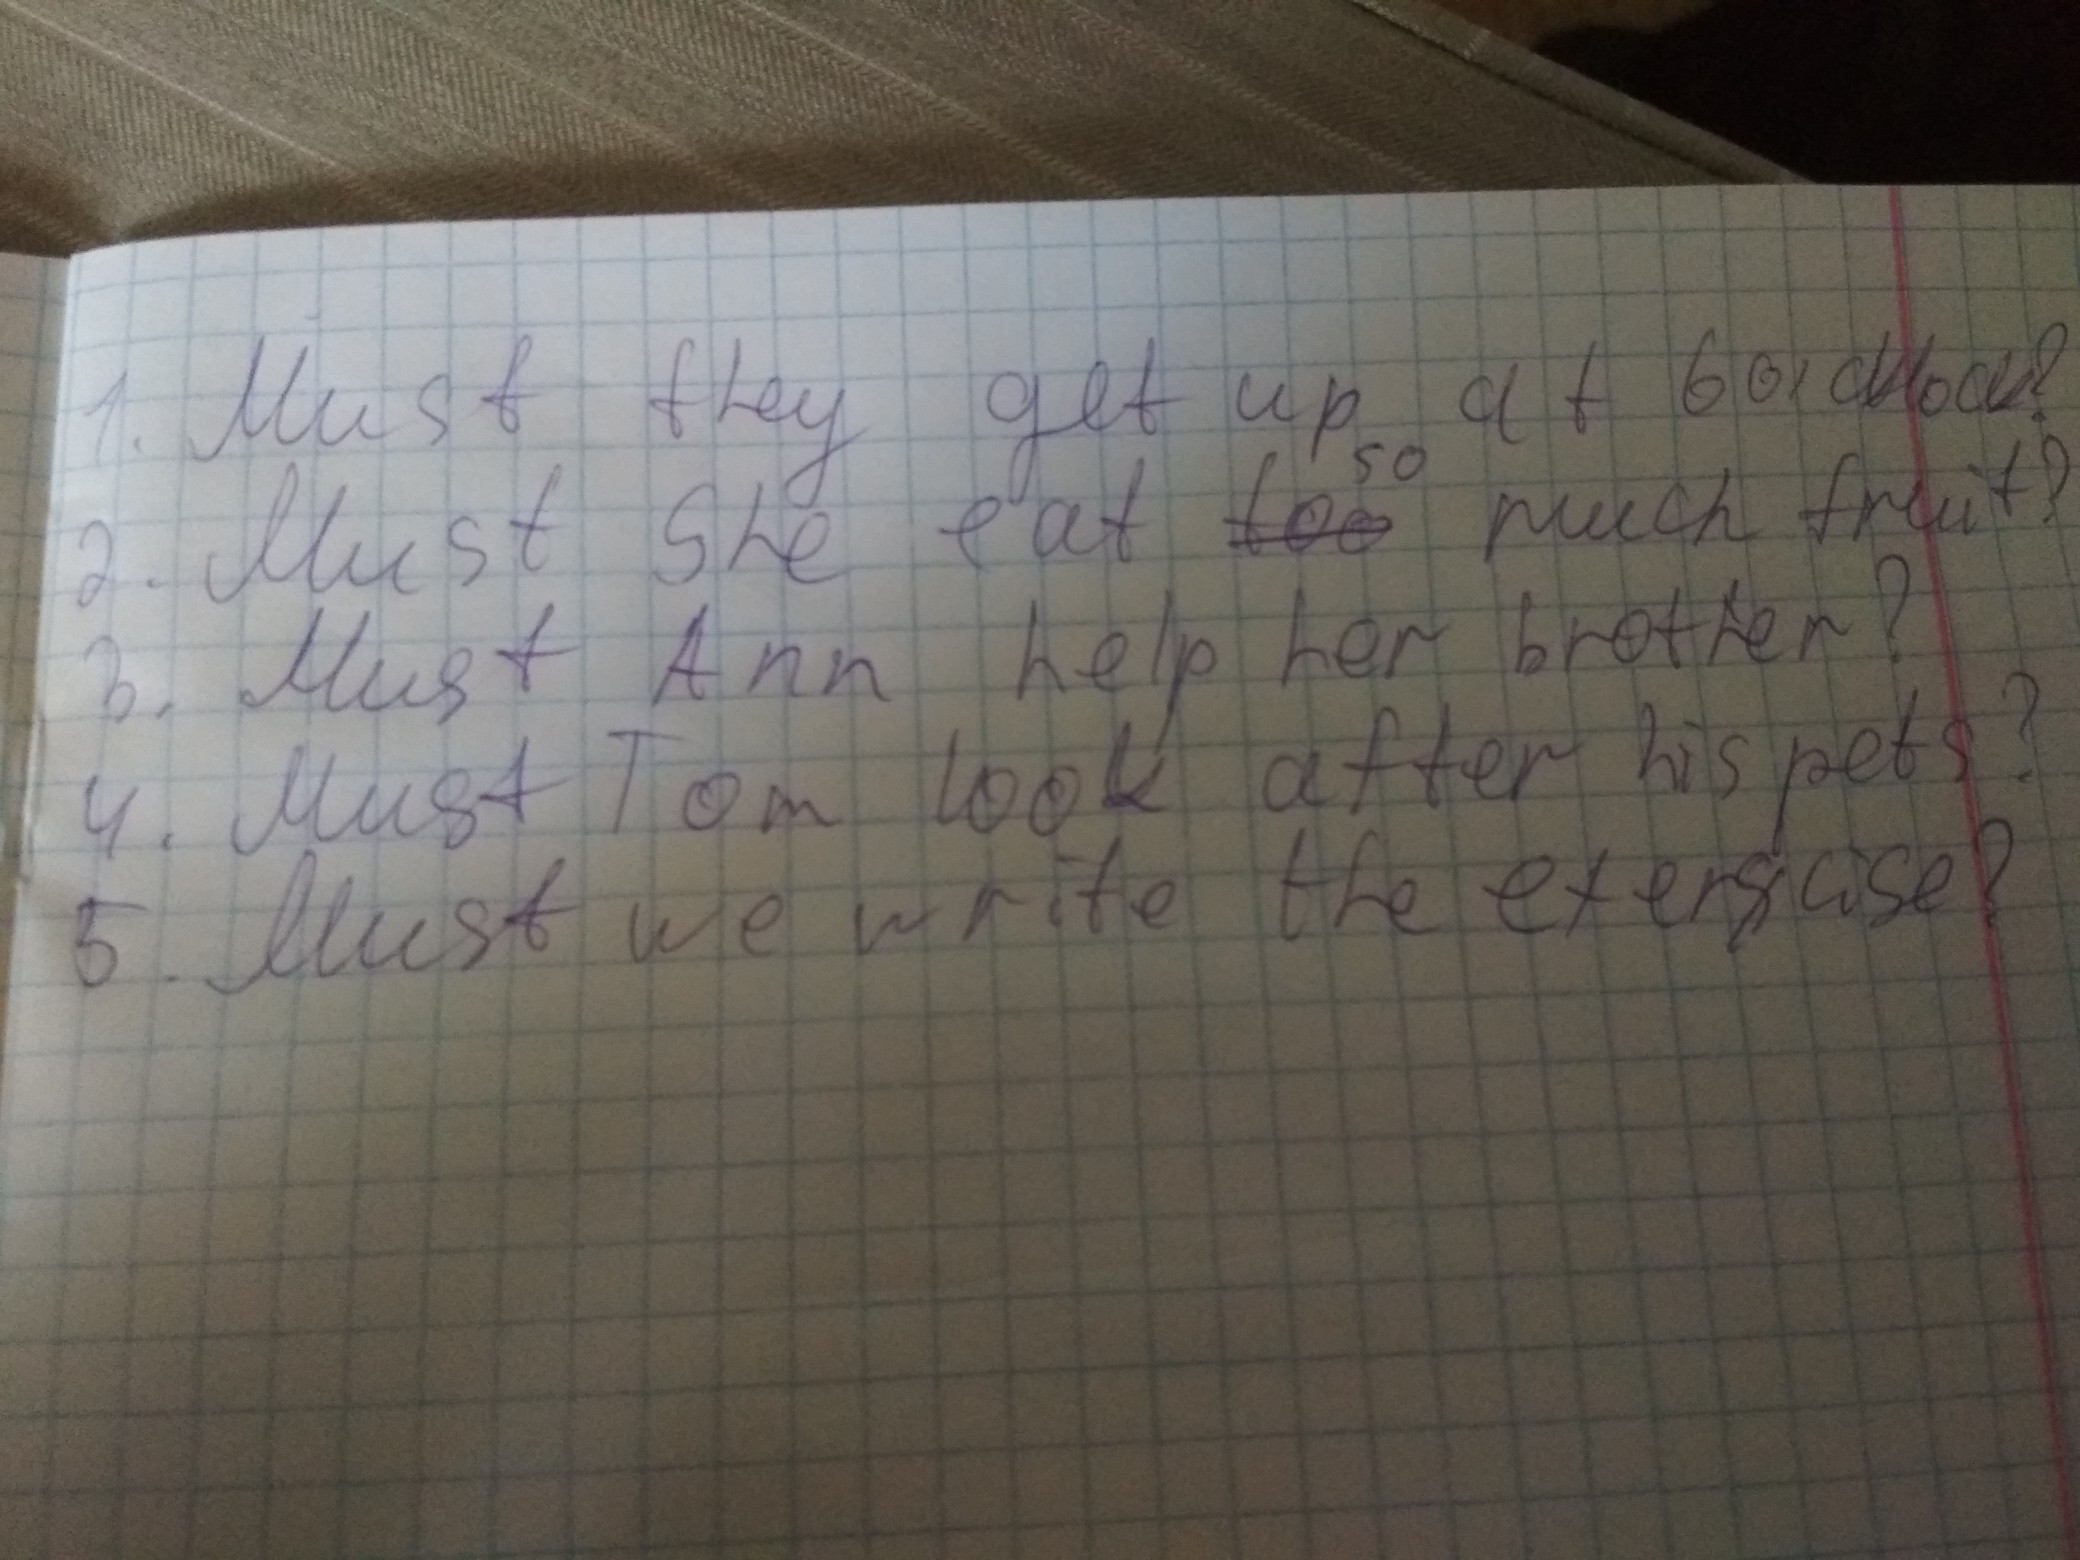 1. Must they get up at 6 o'clock?
2. Must She eat so much fruit?
3. Must Ann help her brother?
4. Must Tom look after his pets?
5. Must we write the exercise?